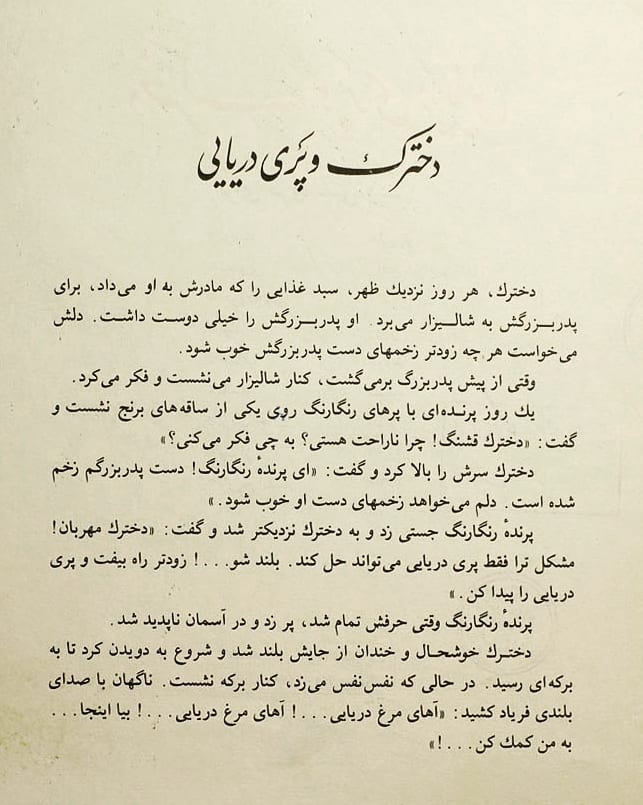 دخترک و پَری دریایی
دخترك، هر روز نزدیك ظهر، سبد غذایی را که مادرش به او می‌داد، برای
پدربزرگش به شالیزار می‌برد. او پدربزرگش را خیلی دوست داشت. دلش
می‌خواست هر چه زودتر زخمهای دست پدربزرگش خوب شود.
وقتی از پیش پدربزرگ برمی‌گشت، کنار شالیزار می‌نشست و فکر می‌کرد.
یك روز پرنده‌ای با پرهای رنگارنگ روی یکی از ساقه‌های برنج نشست و
گفت: «دخترك قشنگ! چرا ناراحت هستی؟ به چی فکر می‌کنی؟»
دخترك سرش را بالا کرد و گفت: «ای پرندهٔ رنگارنگ! دست پدربزرگم زخم
شده است. دلم می‌خواهد زخمهای دست او خوب شود.»
پرندهٔ رنگارنگ جستی زد و به دخترك نزدیکتر شد و گفت: «دخترك مهربان!
مشکل ترا فقط پری دریایی می‌تواند حل کند. بلند شو...! زودتر راه بیفت و پری
دریایی را پیدا کن.»
پرندهٔ رنگارنگ وقتی حرفش تمام شد، پر زد و در آسمان ناپدید شد.
دخترك خوشحال و خندان از جایش بلند شد و شروع به دویدن کرد تا به
برکه‌ای رسید. در حالی که نفس‌نفس می‌زد، کنار برکه نشست. ناگهان با صدای
بلندی فریاد کشید: «آهای مرغ دریایی...! آهای مرغ دریایی...! بیا اینجا...
به من کمك کن...!»